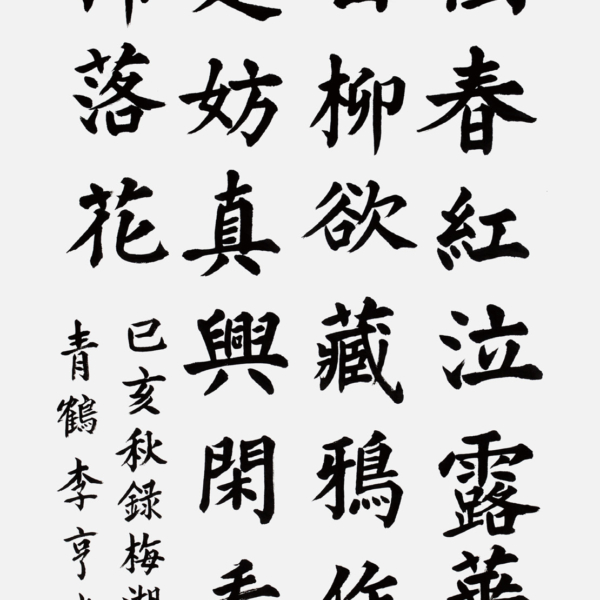 春紅泣露華
柳欲藏鴉作
妨真興閑看
落花
己亥秋錄梅湖
青鶴李亨